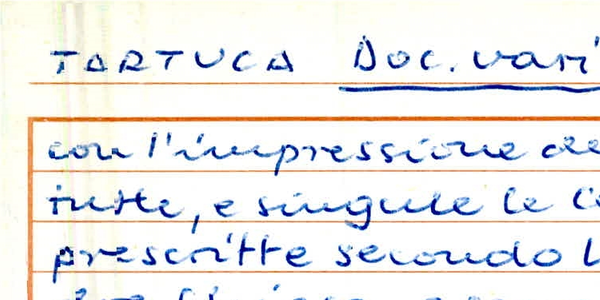 TARTUCA Doc. vari
con l'impressione de
tutte, e singule le
prescritte secondo